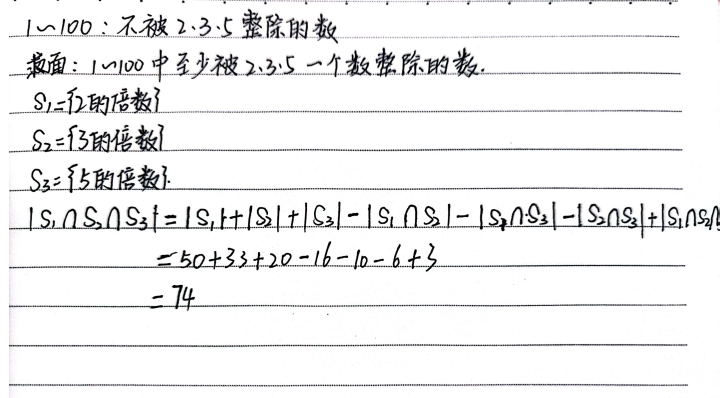 1~100：不被2·3·5整除的数
反面：1~100中至少被2·3·5一个数整除的数.
S₁={2的倍数}
S₂={3的倍数}
S₃={5的倍数}.
|S₁∩S₂∩S₃|=|S₁|+|S₂|+|S₃|-|S₁∩S₂|-|S₁∩S₃|-|S₂∩S₃|+|S₁∩S₂∩
=50+33+20-16-10-6+3
=74